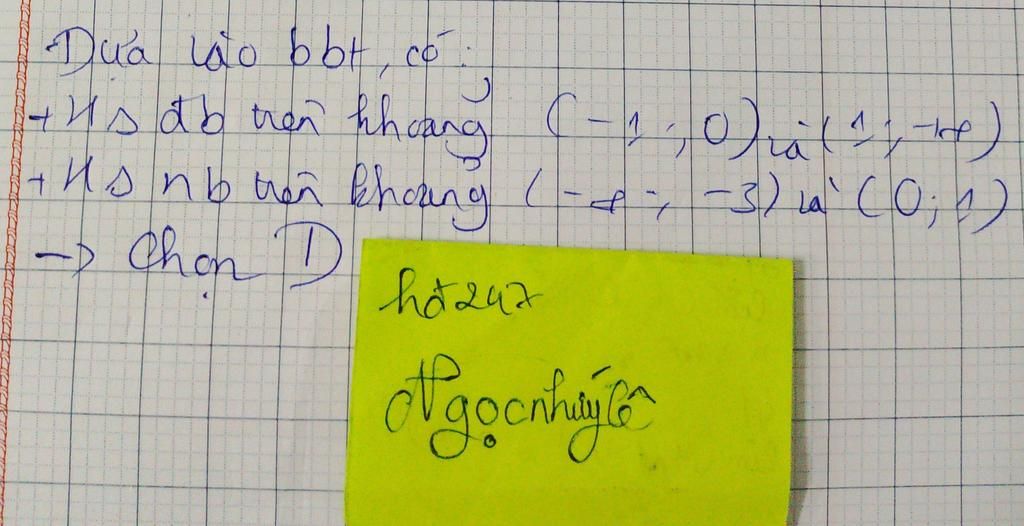 Dựa vào bbt, có:
+ Hs đb trên khoảng (-1; 0) và (1; +∞)
+ Hs nb trên khoảng (-∞; -3) và (0; 1)
-> Chọn D
hđ247
Ngọcnhưý